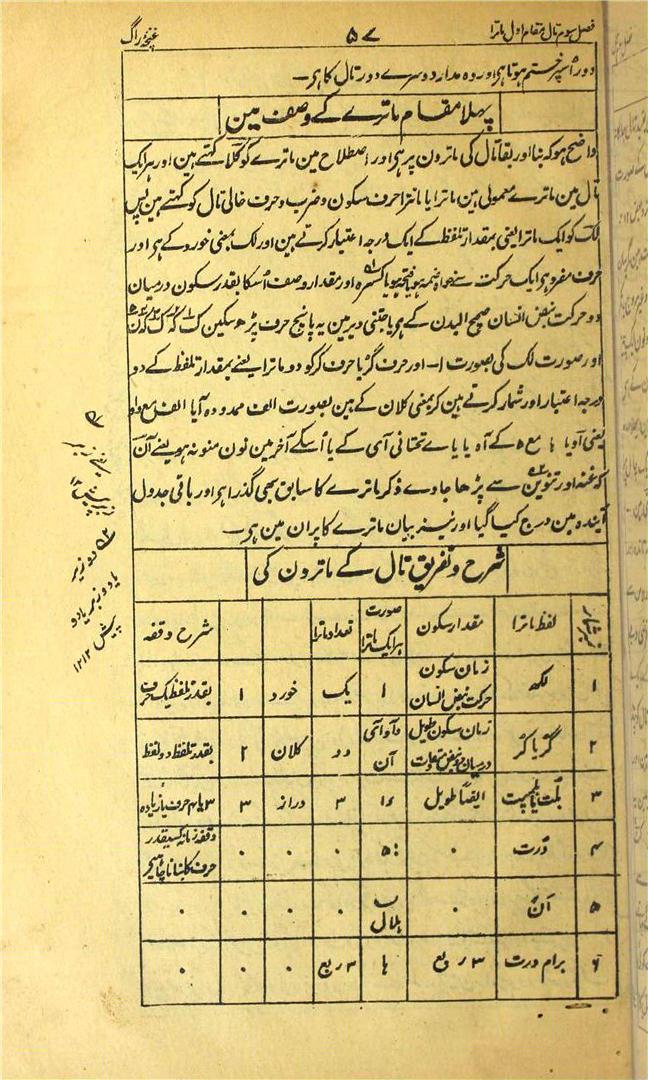 فصل سوم تال مقام اول ماترا ۵۷ غنچۂ راگ
دور اسپر ختم ہوتا ہی اور وہ مدار دوسرے دور تال کا ہی ۔
پہلا مقام ماترے کے وصف مین
واضح ہو کہ بنا اور بقا تال کی ماترون پر ہی اور اصطلاح مین ماترے کو کلا کہتے ہین اور ہر ایک
تال مین ماترے معمولی ہین ماترا یا مانترا حرف سکون و ضرب و حرف خالی تال کو کہتے ہین پس
لک کو ایک ماترا یعنی بمقدار تلفظ کے ایک درجہ اعتبار کرتے ہین اور لک بمعنی خورد کے ہی اور
حرف مفرد ہی ایک حرکت سے خواہ ضمہ ہو یا فتحہ ہو یا کسرہ اور مقدار وصف اُسکا بقدر سکون درمیان
دو حرکت نبض انسان صحیح البدن کے ہی یا جتنی دیر مین یہ پانچ حرف پڑھ سکین
اور صورت لک کی بصورت ا ۔ اور حرف گُر یا حرف گرکو دو ماترا یعنے بمقدار تلفظ کے دو
درجہ اعتبار اور شمار کرتے ہین گر بمعنی کلان کے ہین بصورت الف ممدودہ آیا الف مع واو
یعنی آو یا ہا مع ہ کے آہ یا یاے تحتانی آی کے یا اُسکے آخر مین نون منونہ ہو یعنے آن
کہ غنہ اور تنوین سے پڑھا جاوے ذکر ماترے کا سابق بھی گذرا ہی اور باقی جدول
آیندہ مین درج کیا گیا اور نیز بیان ماترے کا پران مین ہی ۔
شرح و تفریق تال کے ماترون کی
نمبر شمار لفظ ماترا مقدار سکون صورت ہر ایک ماترا تعداد ماترا شرح وقفہ
۱ لکھ زمان سکون حرکت نبض انسان ا یک خورد ۱ بقدر تلفظ یک حرف
۲ گُر یا کُر زمان سکون طویل درمیان آ و آو آی آن دو کلان ۲ بقدر تلفظ دو لفظ
۳ پلت یا ایضاً طویل ۳ دراز ۳ ۳ یا ۴ حرف یا زیادہ
۴ دُرت ۰ ۰ ۰ ۰ وقفہ زمانہ کسیقدر حرف کا
۵ اَن ۰ ہلال ۰ ۰ ۰ ۰
۶ برام درت ۳ ربع ہا ۳ ربع ۰ ۰ ۰
دو زبر
یا دو زیر یا دو
پیش ۱۲ ۱۲